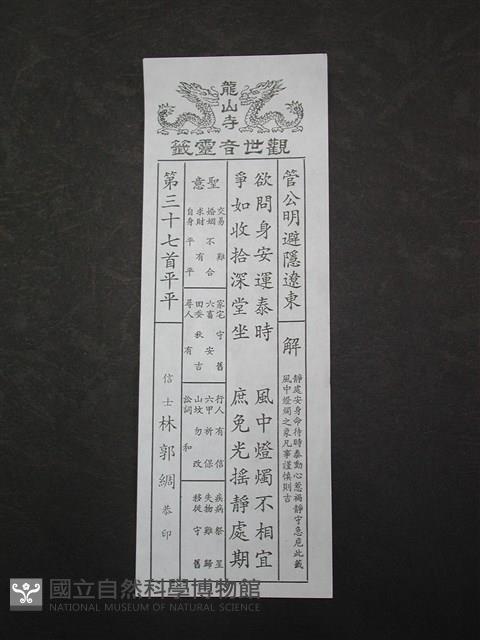 龍山寺
觀世音靈籤
管公明避隱遼東
解
靜處安身命待時泰動心惹禍靜守急危此籤
風中燈燭之象凡事謹慎則吉
欲問身安運泰時 風中燈燭不相宜
爭如收拾深堂坐 庶免光搖靜處期
聖意
交易 難
婚姻 不合
求財 有
自身 平平
家宅 守舊
六畜 安
田蚕 秋吉
尋人 有
行人 有信
六甲 祈保
山坟 勿改
訟詞 和
疾病 祭星
失物 難歸
移徙 守舊
第三十七首平平
信士林郭綢恭印
國立自然科學博物館
NATIONAL MUSEUM OF NATURAL SCIENCE